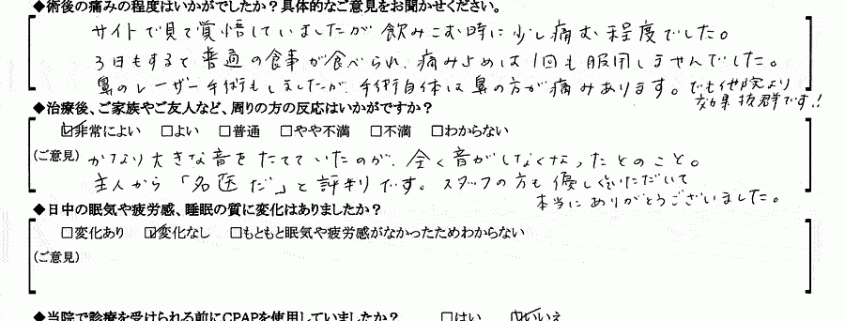 ◆術後の痛みの程度はいかがでしたか?具体的なご意見をお聞かせください。
サイトで見て覚悟していましたが 飲みこむ時に少し痛む程度でした。
3日もすると普通の食事が食べられ、痛み止めは1回も服用しませんでした。
鼻のレーザー手術もしましたが、手術自体は鼻の方が痛みあります。でも他院より
効果抜群です!!
◆治療後、ご家族やご友人など、周りの方の反応はいかがですか?
☑非常によい □よい □普通 □やや不満 □不満 □わからない
(ご意見) かなり大きな音をたてていたのが、全く音がしなくなったとのこと。
主人から「名医だ」と評判です。スタッフの方も優しくいただいて
本当にありがとうございました。
◆日中の眠気や疲労感、睡眠の質に変化はありましたか?
□変化あり ☑変化なし □もともと眠気や疲労感がなかったためわからない
(ご意見)
◆当院で診療を受けられる前にCPAPを使用していましたか? □はい ☑いいえ